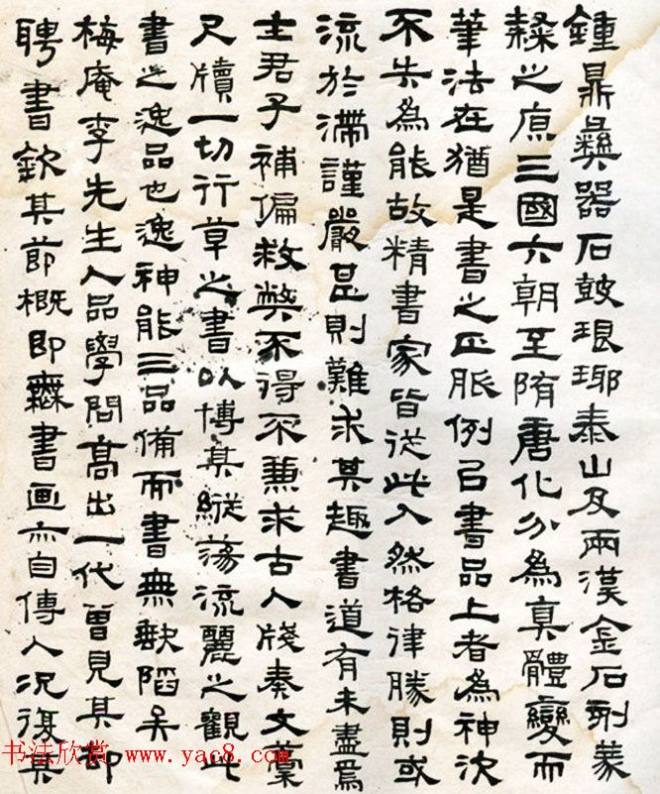 鍾鼎彝器石鼓琅琊泰山及兩漢金石刻篆
隸之原三國六朝至隋唐化分為真體變而
筆法在猶是書之正脈例㠯書品上者為神次
不失為能故精書家皆從此入然格律勝則或
流於滯謹嚴甚則難求其趣書道有未盡焉
士君子補偏救弊不得不兼求古人牋奏文藁
尺牘一切行草之書以博其縱蕩流麗之觀此
書之逸品也逸神能三品備而書無缺陷矣
梅庵李先生人品學問高出一代曾見其卻
聘書欽其節概即無書画亦自傳人況復其
书法欣赏 www.yac8.com